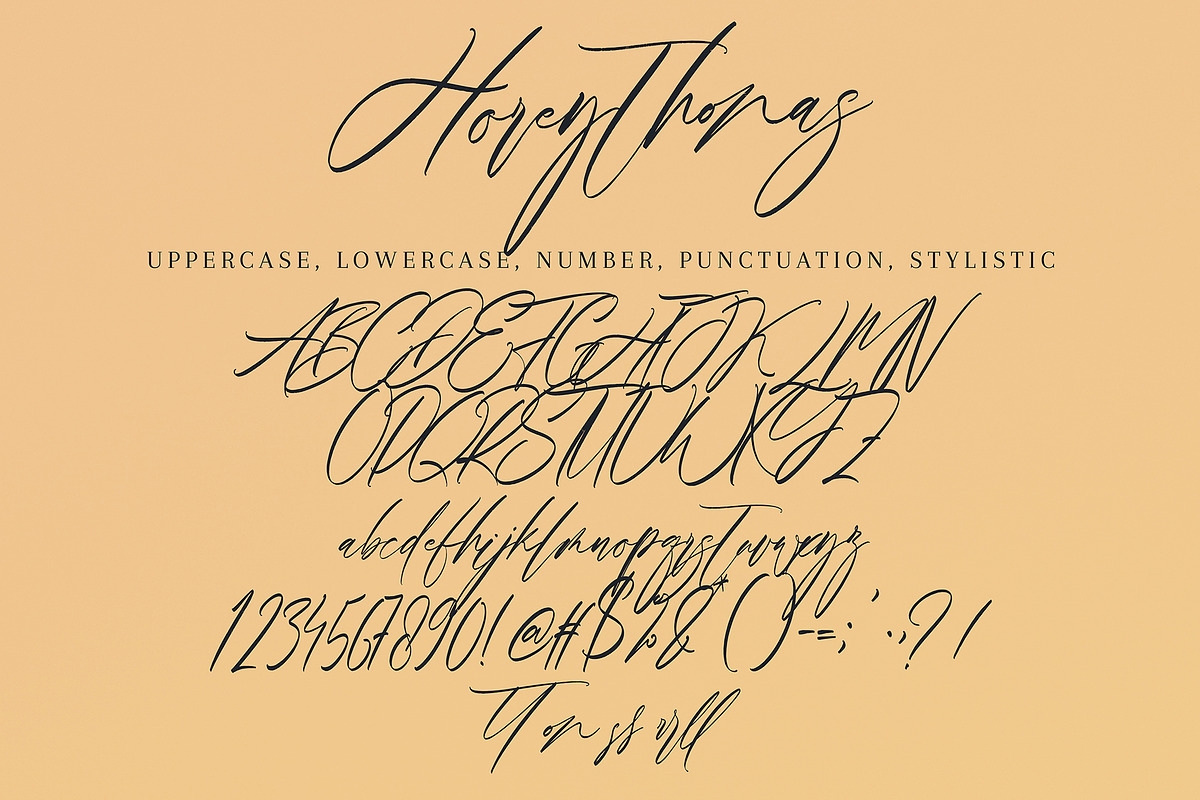 HoreyThonas
UPPERCASE, LOWERCASE, NUMBER, PUNCTUATION, STYLISTIC
ABCDEFGHIJKLMN
OPQRSTUVWXYZ
abcdefhijklmnopqrstuvwxyz
1234567890!@#$%&*()-=;:'.,?/